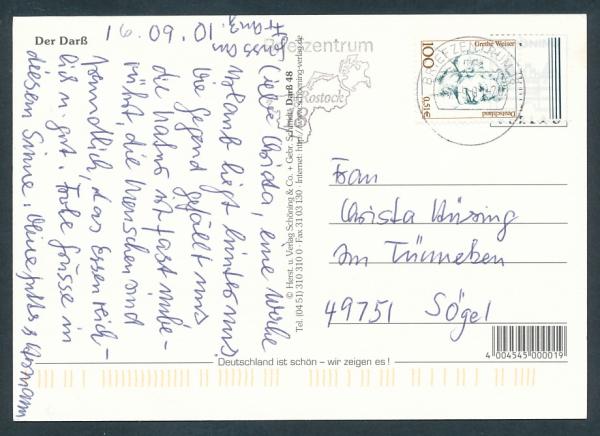 Der Darß
10.09.01
Liebe Christa, eine Woche
Urlaub liegt hinter uns.
Die Gegend gefällt uns
die Natur ist fast unbe-
rührt, die Menschen sind
freundlich, das Essen reich-
lich u. gut. Frohe Grüsse in
diesem Sinne,
© Herst. u. Verlag Schöning & Co. + Gebr. Schmidt
Darß 48
Tel. (04 51) 310 310 0 · Fax 31 03 130 · Internet: http://www.schoening-verlag.de
Briefzentrum
Rostock
BRIEFZENTRUM
100
Grethe Weiser
0,51€
Deutschland
Frau
Christa Hüsing
Am Tünneben
49751 Sögel
4 004545 000019
Deutschland ist schön – wir zeigen es!